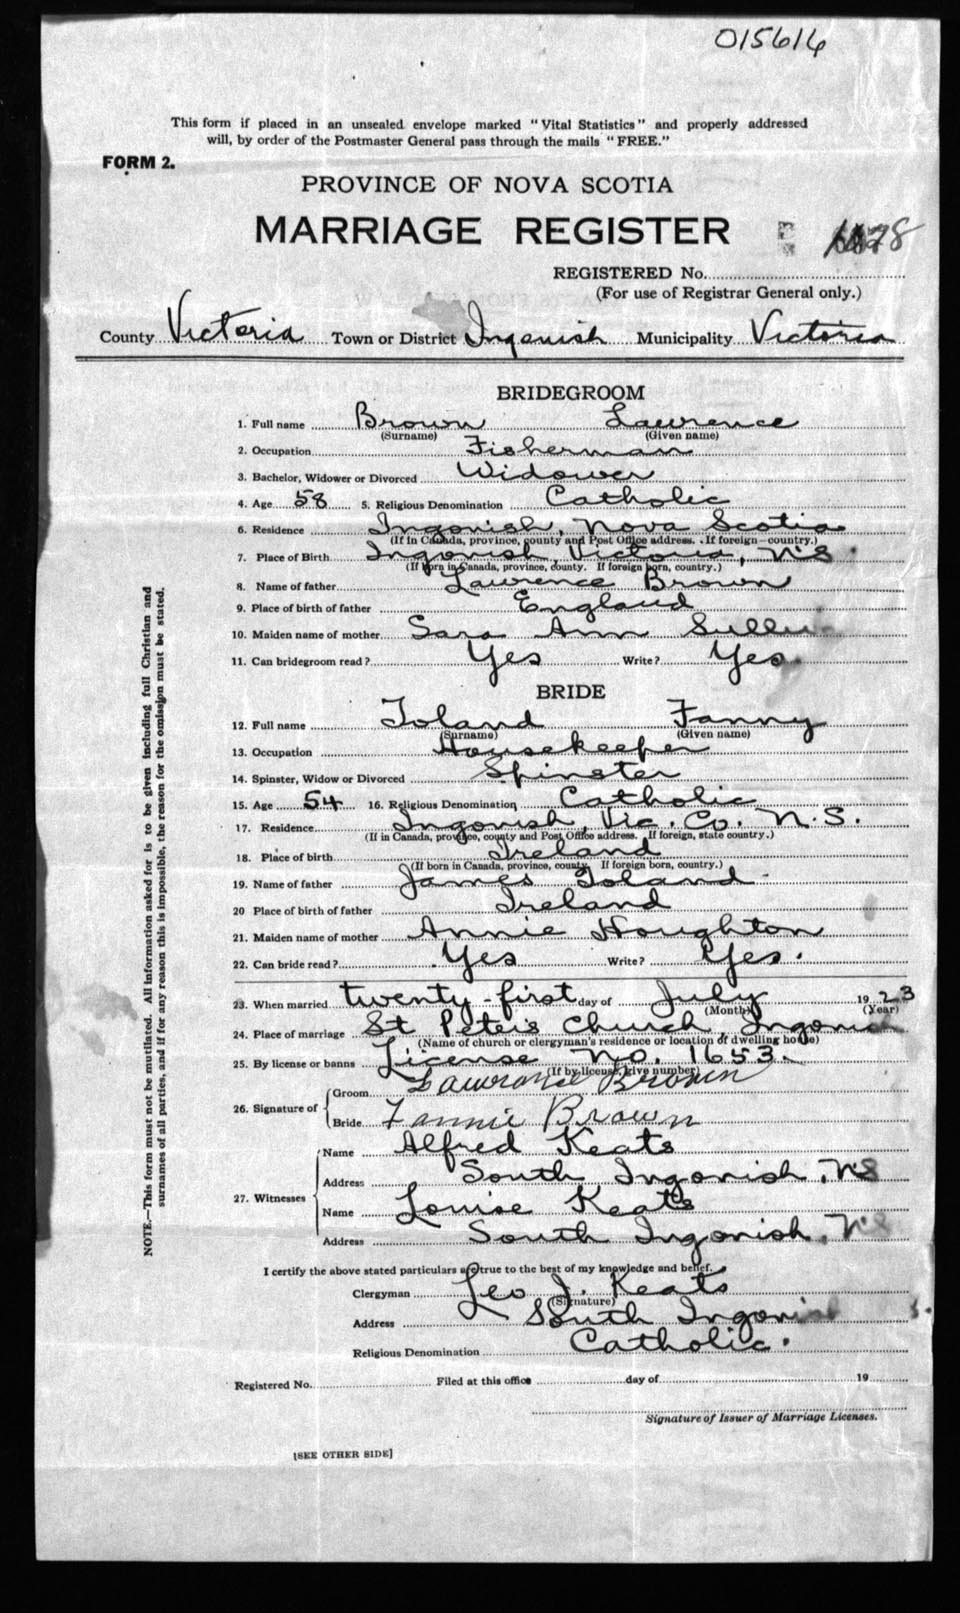 015616
This form if placed in an unsealed envelope marked "Vital Statistics" and properly addressed
will, by order of the Postmaster General pass through the mails "FREE."
FORM 2.
PROVINCE OF NOVA SCOTIA
MARRIAGE REGISTER
REGISTERED No.
(For use of Registrar General only.)
County Victoria Town or District Ingonish Municipality Victoria
BRIDEGROOM
1. Full name Brown Lawrence
(Surname) (Given name)
2. Occupation Fisherman
3. Bachelor, Widower or Divorced Widower
4. Age 58 5. Religious Denomination Catholic
6. Residence Ingonish, Nova Scotia
(If in Canada, province, county and Post Office address. If foreign—country.)
7. Place of Birth Ingonish, Victoria, N.S.
(If born in Canada, province, county. If foreign born, country.)
8. Name of father Lawrence Brown
9. Place of birth of father England
10. Maiden name of mother Sara Ann
11. Can bridegroom read? Yes Write? Yes
BRIDE
12. Full name Toland Fanny
(Surname) (Given name)
13. Occupation Housekeeper
14. Spinster, Widow or Divorced Spinster
15. Age 54 16. Religious Denomination Catholic
17. Residence Ingonish, Vic. Co. N.S.
(If in Canada, province, county and Post Office address. If foreign, state country.)
18. Place of birth Ireland
(If born in Canada, province, county. If foreign born, country.)
19. Name of father James Toland
20 Place of birth of father Ireland
21. Maiden name of mother Annie Houghton
22. Can bride read? Yes Write? Yes.
23. When married twenty-first day of July 1923
(Month) (Year)
24. Place of marriage St Peter's Church, Ingonish
(Name of church or clergyman's residence or location of dwelling house)
25. By license or banns License No. 1653.
(If by license, give number)
26. Signature of
Groom Lawrance Brown
Bride Fannie Brown
27. Witnesses
Name Alfred Keats
Address South Ingonish, N.S
Name Louise Keats
Address South Ingonish, N.S
I certify the above stated particulars are true to the best of my knowledge and belief.
Clergyman Leo J. Keats
(Signature)
Address South Ingonish
Religious Denomination Catholic.
Registered No. Filed at this office day of 19
Signature of Issuer of Marriage Licenses.
[SEE OTHER SIDE]
NOTE.—This form must not be mutilated. All information asked for is to be given including full Christian and
surnames of all parties, and if for any reason this is impossible, the reason for the omission must be stated.